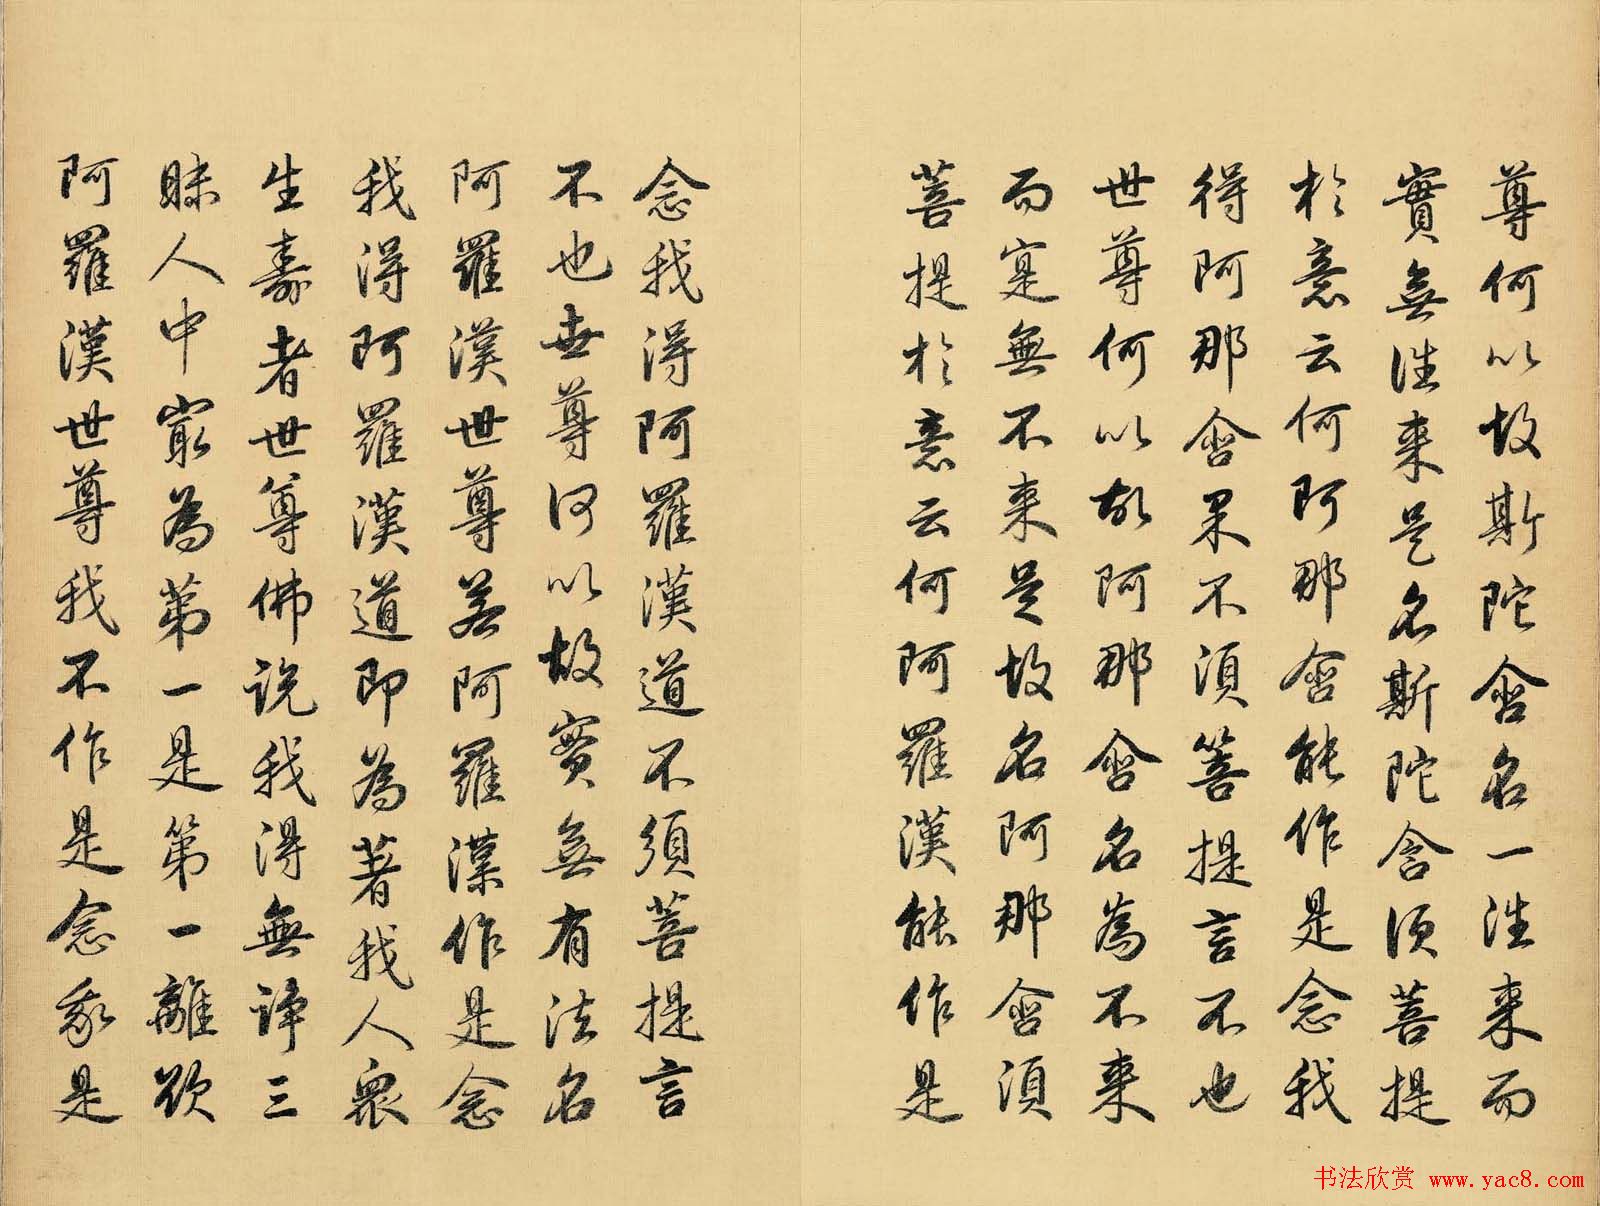 尊何以故斯陀含名一往來而
實無往來是名斯陀含須菩提
於意云何阿那含能作是念我
得阿那含果不須菩提言不也
世尊何以故阿那含名為不來
而寔無不來是故名阿那含須
菩提於意云何阿羅漢能作是
念我得阿羅漢道不須菩提言
不也世尊何以故實無有法名
阿羅漢世尊若阿羅漢作是念
我得阿羅漢道即為著我人眾
生壽者世尊佛說我得無諍三
昧人中最為第一是第一離欲
阿羅漢世尊我不作是念我是
书法欣赏 www.yac8.com